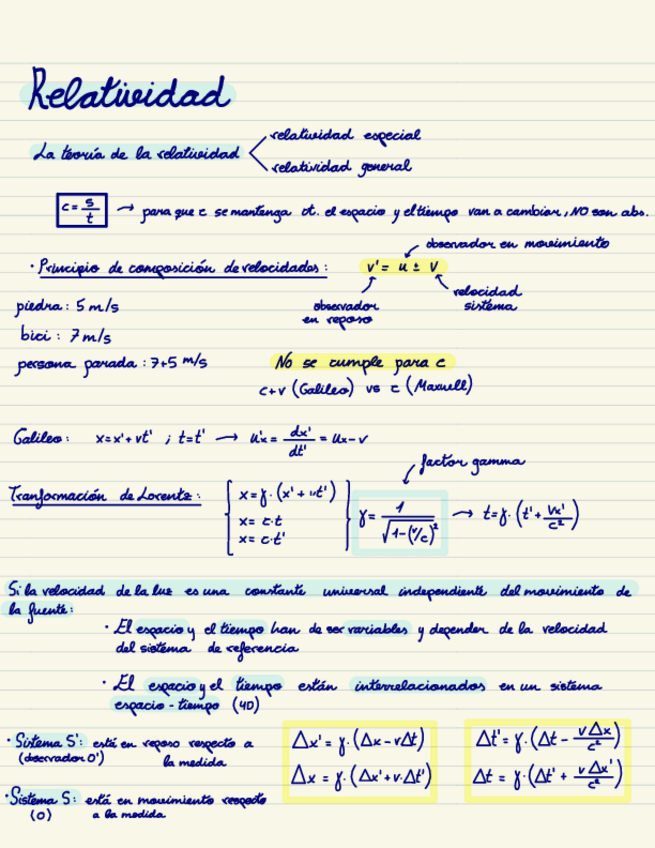 Relatividad
La teoría de la relatividad
relatividad especial
relatividad general
c = s/t → para que c se mantenga ct. el espacio y el tiempo van a cambiar, NO son abs.
observador en movimiento
· Principio de composición de velocidades: v' = u ± v
observador en reposo
velocidad sistema
piedra: 5 m/s
bici: 7 m/s
persona parada: 7+5 m/s
No se cumple para c
c+v (Galileo) vs c (Maxwell)
Galileo: x=x'+vt' ; t=t' → u'x = dx'/dt' = ux-v
factor gamma
Tranformación de Lorentz:
x=γ·(x'+vt')
x= c·t
x= c·t'
γ= 1/√1-(v/c)² → t=γ·(t'+vx'/c²)
Si la velocidad de la luz es una constante universal independiente del movimiento de
la fuente:
· El espacio y el tiempo han de ser variables y depender de la velocidad
del sistema de referencia
· El espacio y el tiempo están interrelacionados en un sistema
espacio-tiempo (4D)
· Sistema S': está en reposo respecto a
(observador O') la medida
· Sistema S: está en movimiento respecto
(O) a la medida
Δx' = γ·(Δx-vΔt)
Δx = γ·(Δx'+v·Δt')
Δt' = γ·(Δt - vΔx/c²)
Δt = γ·(Δt' + vΔx'/c²)